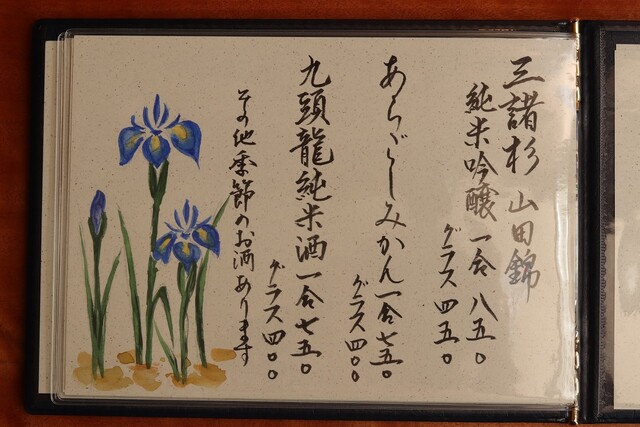 三諸杉 山田錦
純米吟醸 一合 八五〇
グラス 四五〇
あらごしみかん 一合 七五〇
グラス 四〇〇
九頭龍純米酒 一合 七五〇
グラス 四〇〇
その他季節のお酒あります